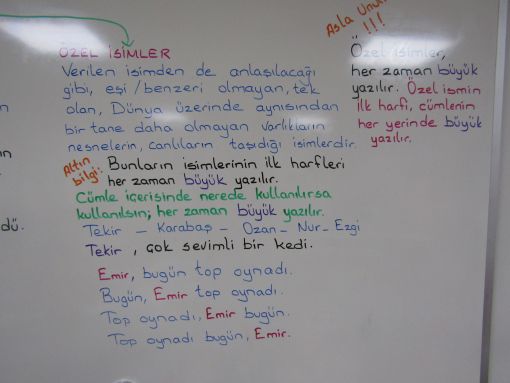 ÖZEL İSİMLER
Verilen isimden de anlaşılacağı
gibi, eşi/benzeri olmayan, tek
olan, Dünya üzerinde aynısından
bir tane daha olmayan varlıkların
nesnelerin, canlıların taşıdığı isimlerdir.
Altın bilgi:
Bunların isimlerinin ilk harfleri
her zaman büyük yazılır.
Cümle içerisinde nerede kullanılırsa
kullanılsın; her zaman büyük yazılır.
Tekir - Karabaş - Ozan - Nur - Ezgi
Tekir, çok sevimli bir kedi.
Emir, bugün top oynadı.
Bugün, Emir top oynadı.
Top oynadı, Emir bugün.
Top oynadı bugün, Emir.
Asla Unut
!!!
Özel isimler,
her zaman büyük
yazılır. Özel ismin
ilk harfi, cümlenin
her yerinde büyük
yazılır.